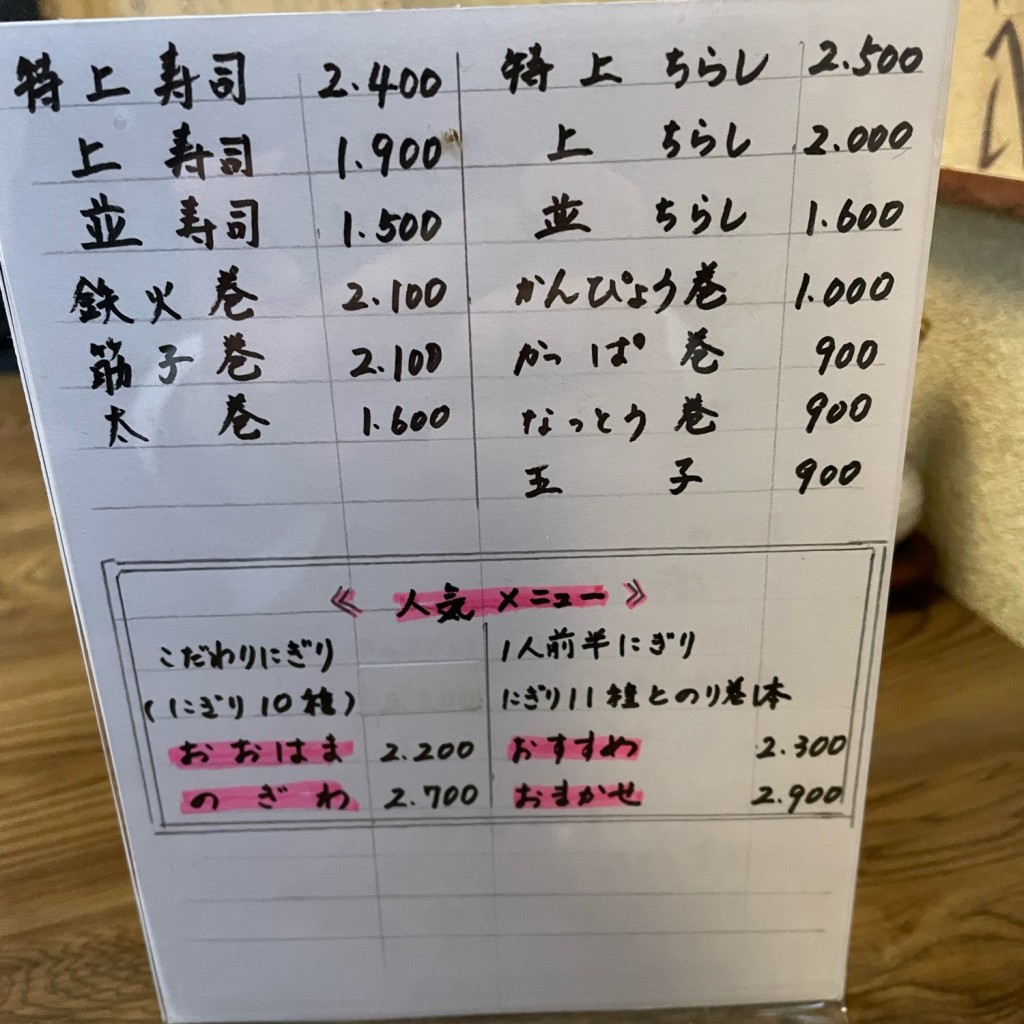 特上寿司 2.400 特上ちらし 2.500
上 寿司 1.900 上 ちらし 2.000
並 寿司 1.500 並 ちらし 1.600
鉄火巻 2.100 かんぴょう巻 1.000
筋子巻 2.100 かっぱ巻 900
太巻 1.600 なっとう巻 900
玉子 900
《人気メニュー》
こだわりにぎり 1人前半にぎり
(にぎり10種) にぎり11種とのり巻1本
おおはま 2.200 おすすめ 2.300
のぎわ 2.700 おまかせ 2.900